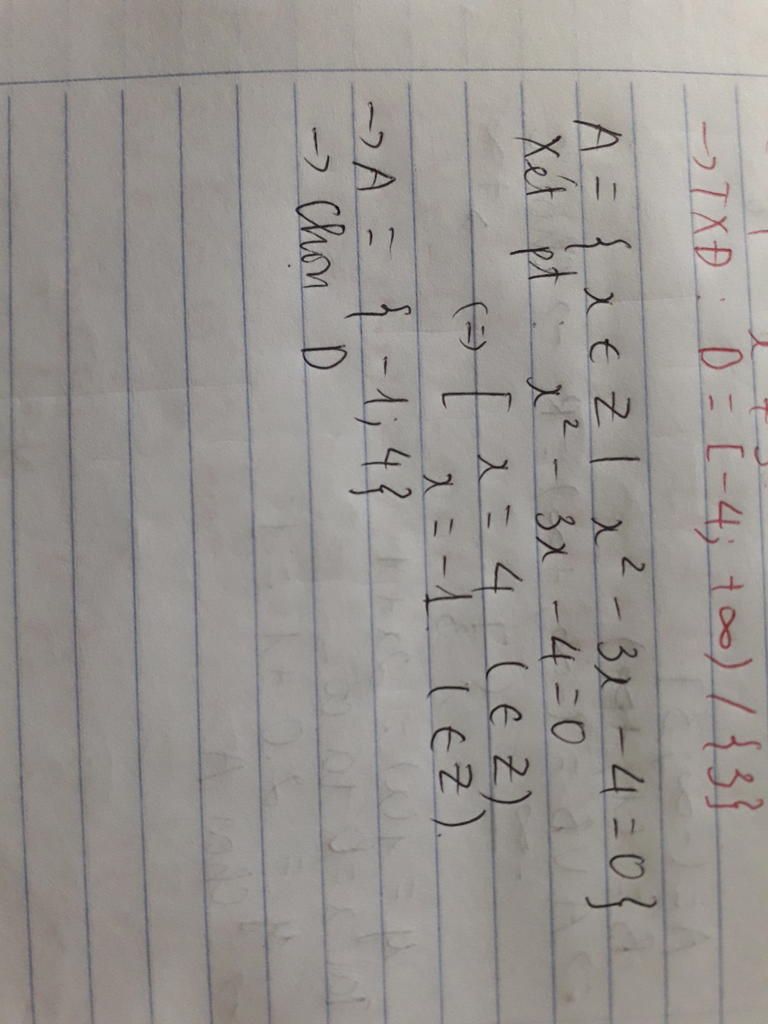 → TXD : D = [-4; +∞) / {3}
A = { x ∈ Z | x² - 3x - 4 = 0 }
Xét pt : x² - 3x - 4 = 0
(=) [ x = 4 (∈ Z)
x = -1 (∈ Z).
→ A = { -1; 4 }
→ Chọn D